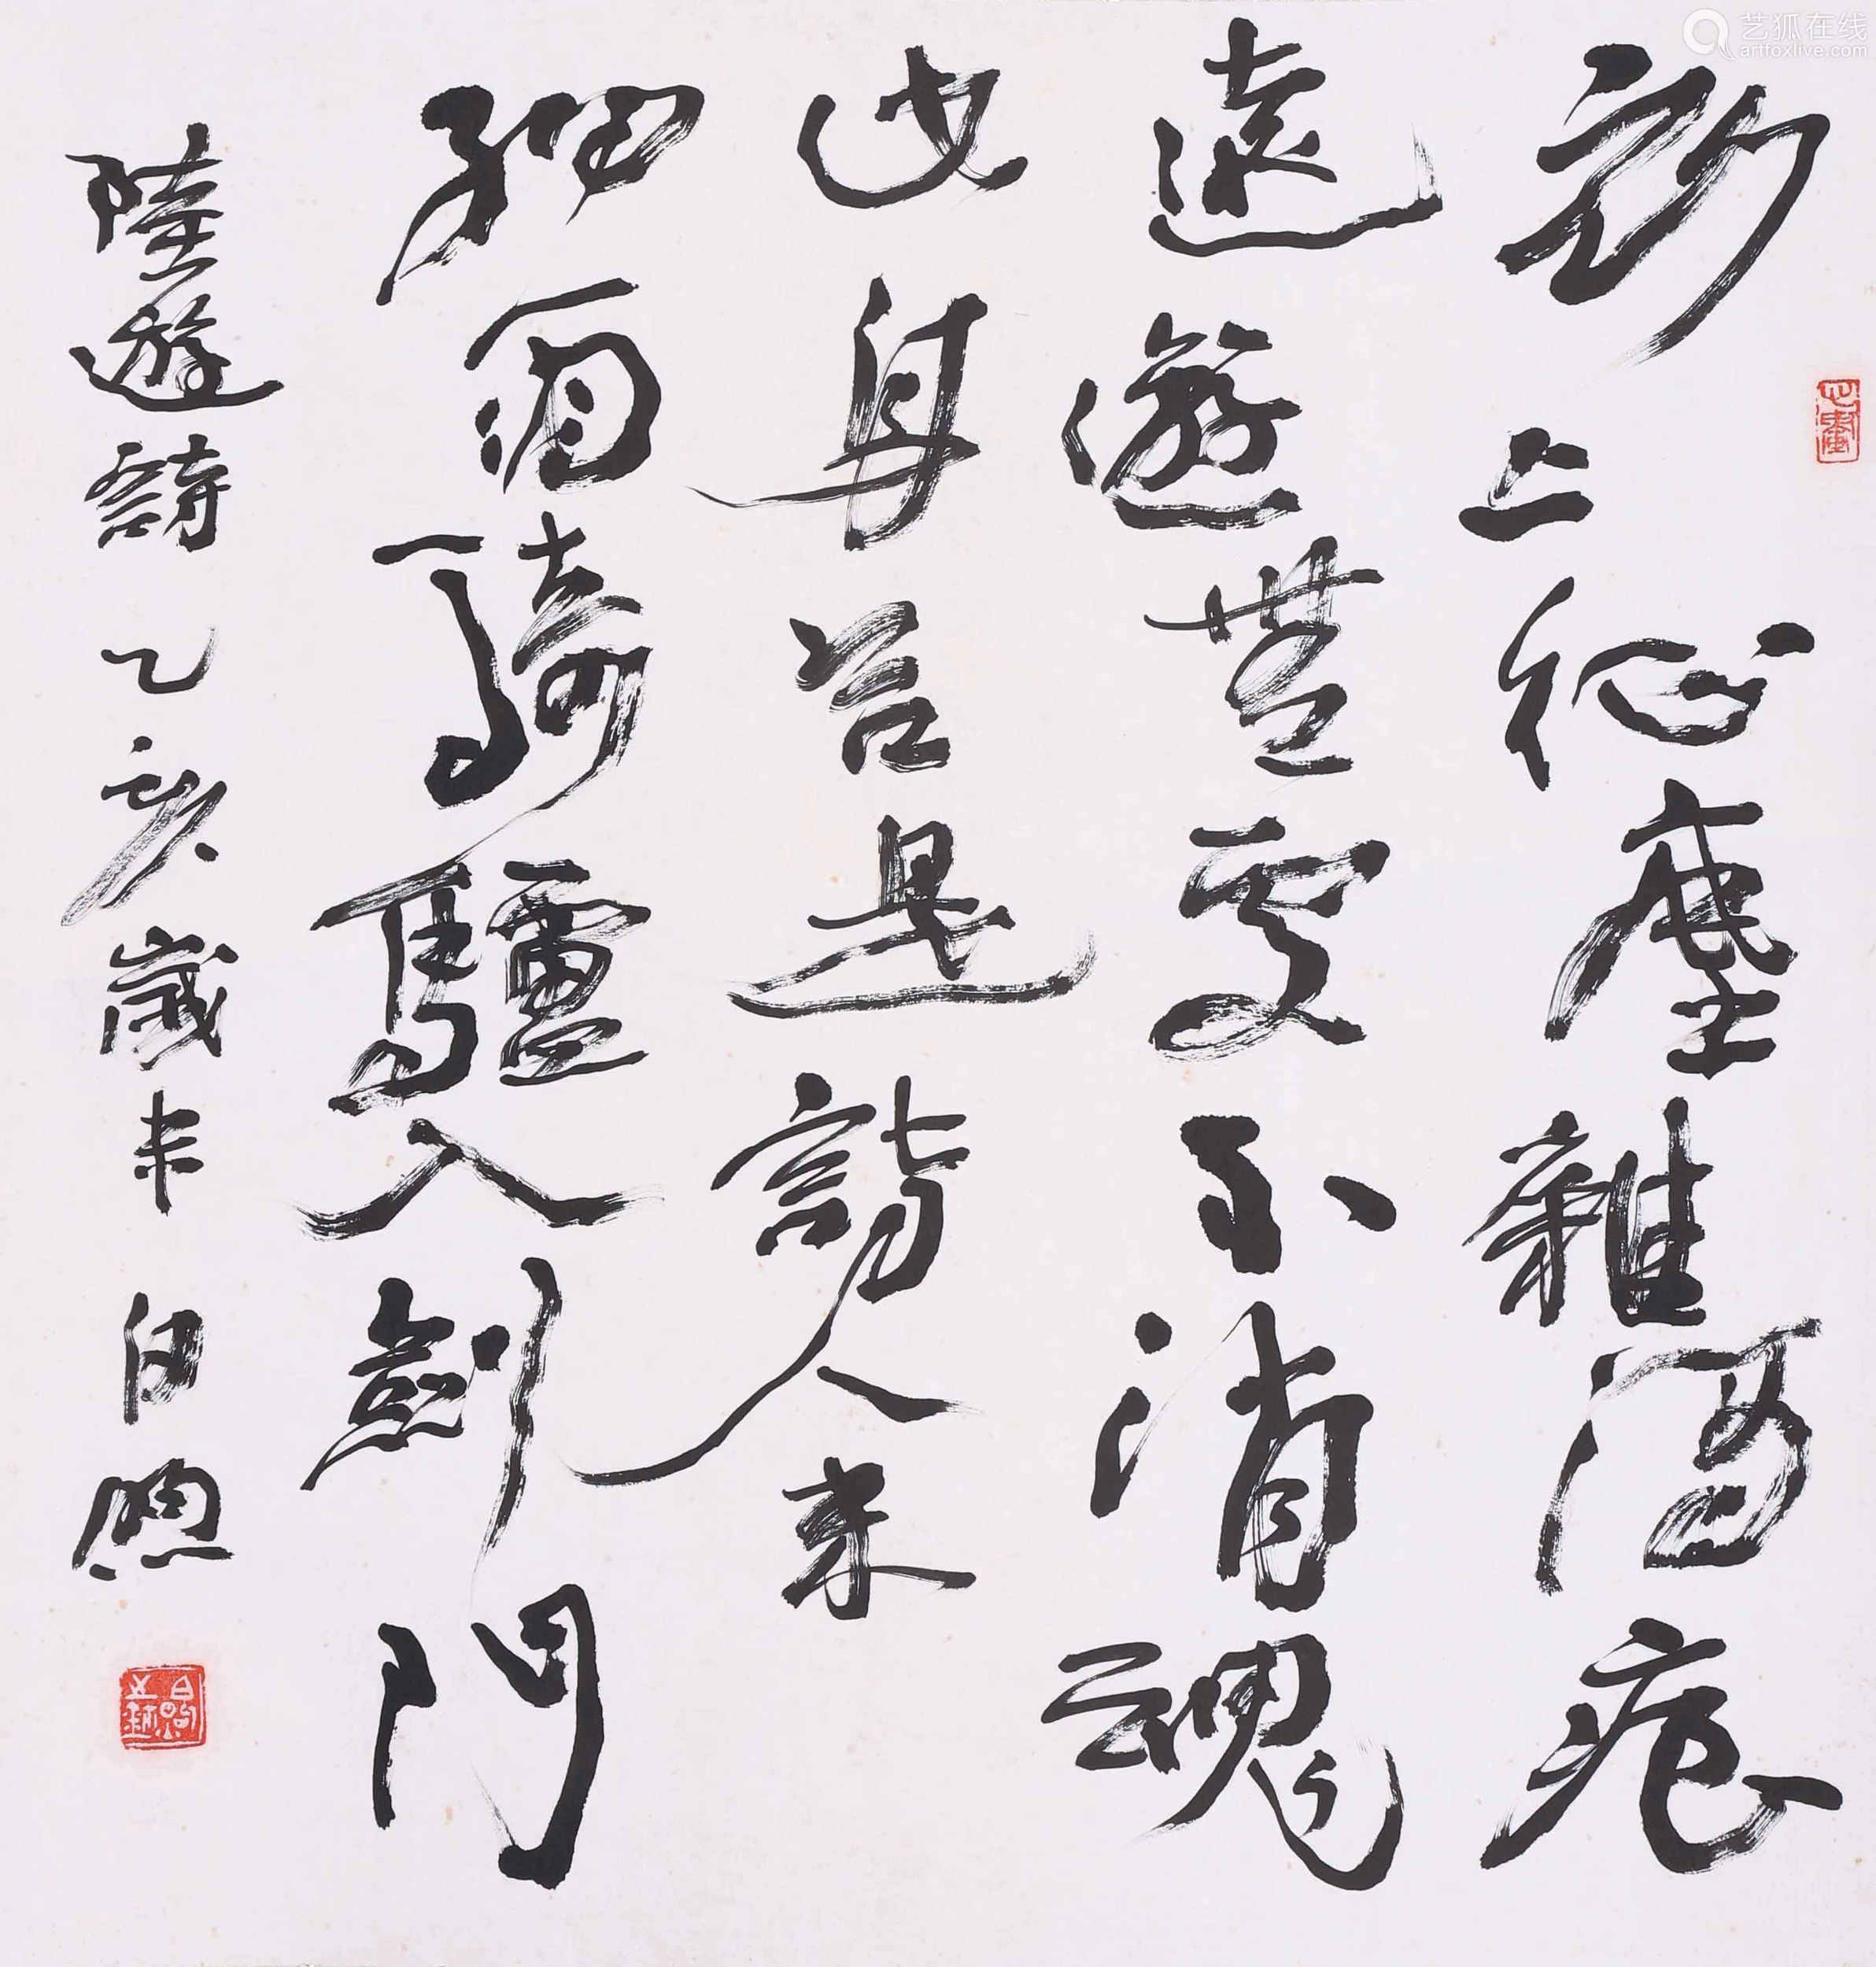 衣上征塵雜酒痕
遠遊無處不消魂
此身合是詩人未
細雨騎驢入劍門
陸遊詩 乙亥歲末 白煦
心畫
艺狐在线
artfoxlive.com